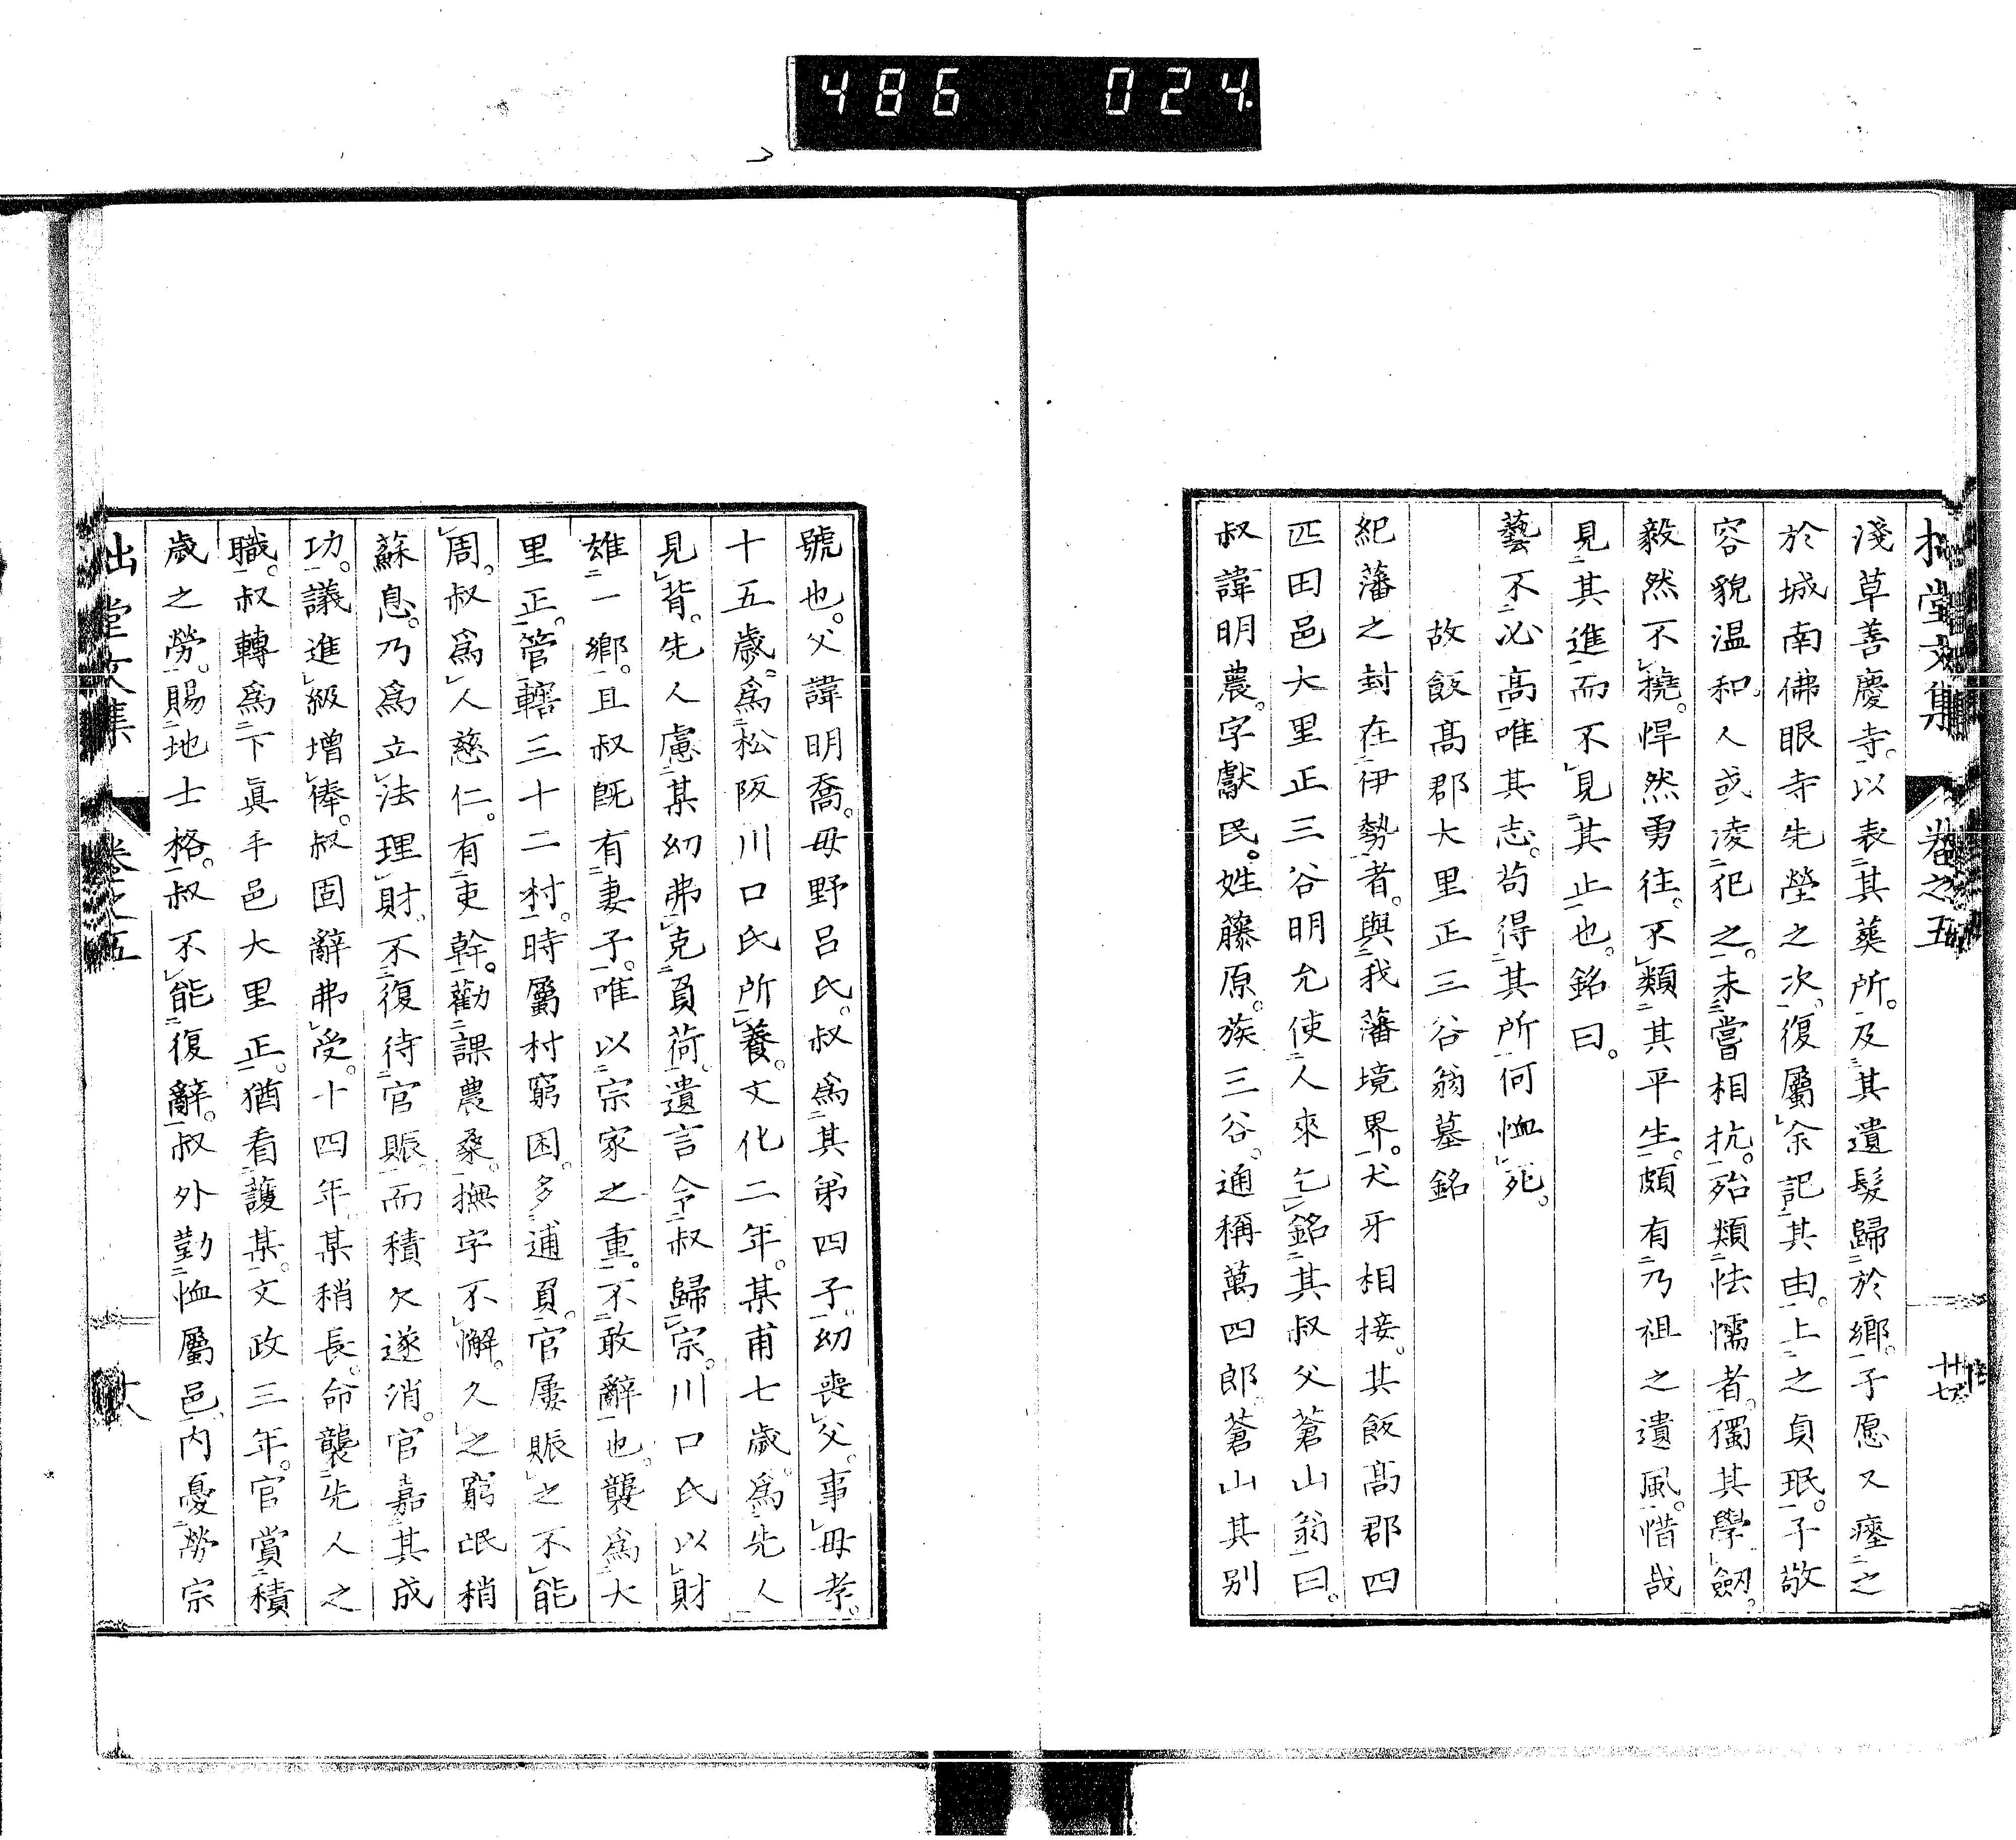 486 024.
拙堂文集 卷之五
淺草善慶寺。以表其葬所。及其遺髮歸於鄉。子愿又瘞之
於城南佛眼寺先塋之次。復屬余記其由。上之貞珉。子敬
容貌温和。人或凌犯之。未嘗相抗。殆類怯懦者。獨其學劒。
毅然不撓。悍然勇往。不類其平生。頗有乃祖之遺風。惜哉
見其進而不見其止也。銘曰。
藝不必高。唯其志。苟得其所。何恤死。
故飯高郡大里正三谷翁墓銘
紀藩之封在伊勢者。與我藩境界。犬牙相接。其飯高郡四
匹田邑大里正三谷明允使人來乞銘其叔父蒼山翁曰。
叔諱明農。字獻民。姓藤原。族三谷。通稱萬四郎。蒼山其別
號也。父諱明喬。毋野呂氏。叔爲其弟四子。幼喪父。事毋孝。
十五歲。爲松阪川口氏所養。文化二年。某甫七歲。爲先人
見背。先人慮某幼弗克負荷。遺言令叔歸宗。川口氏以財
雄一鄉。且叔既有妻子。唯以宗家之重。不敢辭也。襲爲大
里正。管轄三十二村。時屬村窮困。多逋負。官屢賑之不能
周。叔爲人慈仁。有吏幹。勸課農桑。撫字不懈。久之窮氓稍
蘇息。乃爲立法理財。不復待官賑。而積欠遂消。官嘉其成
功。議進級增俸。叔固辭弗受。十四年。某稍長。命襲先人之
職。叔轉爲下眞手邑大里正。猶看護某。文政三年。官賞積
歲之勞。賜地士格。叔不能復辭。叔外勤恤屬邑。内憂勞宗
拙堂文集 卷之五